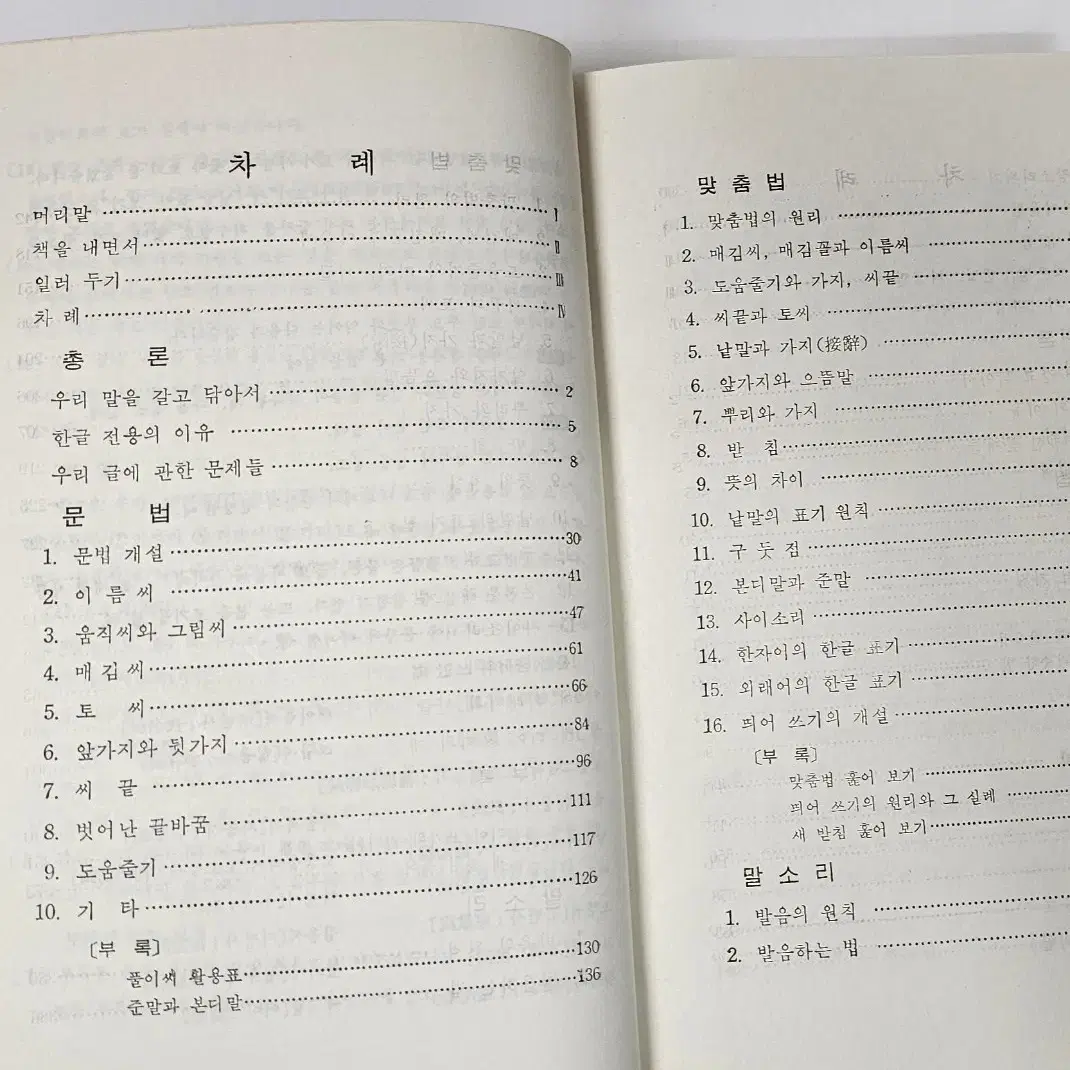 차 례
머리말 ………… Ⅰ
책을 내면서 ………… Ⅱ
일러 두기 ………… Ⅲ
차 례 ………… Ⅳ
총 론
우리 말을 갈고 닦아서 ………… 2
한글 전용의 이유 ………… 5
우리 글에 관한 문제들 ………… 8
문 법
1. 문법 개설 ………… 30
2. 이 름 씨 ………… 41
3. 움직씨와 그림씨 ………… 47
4. 매 김 씨 ………… 61
5. 토 씨 ………… 66
6. 앞가지와 뒷가지 ………… 84
7. 씨 끝 ………… 96
8. 벗어난 끝바꿈 ………… 111
9. 도움줄기 ………… 117
10. 기 타 ………… 126
〔부 록〕 ………… 130
풀이씨 활용표 ………… 136
준말과 본디말 …………
맞 춤 법
1. 맞춤법의 원리 …………
2. 매김씨, 매김꼴과 이름씨 …………
3. 도움줄기와 가지, 씨끝 …………
4. 씨끝과 토씨 …………
5. 낱말과 가지(接辭) …………
6. 앞가지와 으뜸말 …………
7. 뿌리와 가지 …………
8. 받 침 …………
9. 뜻의 차이 …………
10. 낱말의 표기 원칙 …………
11. 구 듯 점 …………
12. 본디말과 준말 …………
13. 사이소리 …………
14. 한자이의 한글 표기 …………
15. 외래어의 한글 표기 …………
16. 띄어 쓰기의 개설 …………
〔부 록〕
맞춤법 훑어 보기 …………
띄어 쓰기의 원리와 그 실례 …………
새 받침 훑어 보기 …………
말 소 리
1. 발음의 원칙 …………
2. 발음하는 법 …………